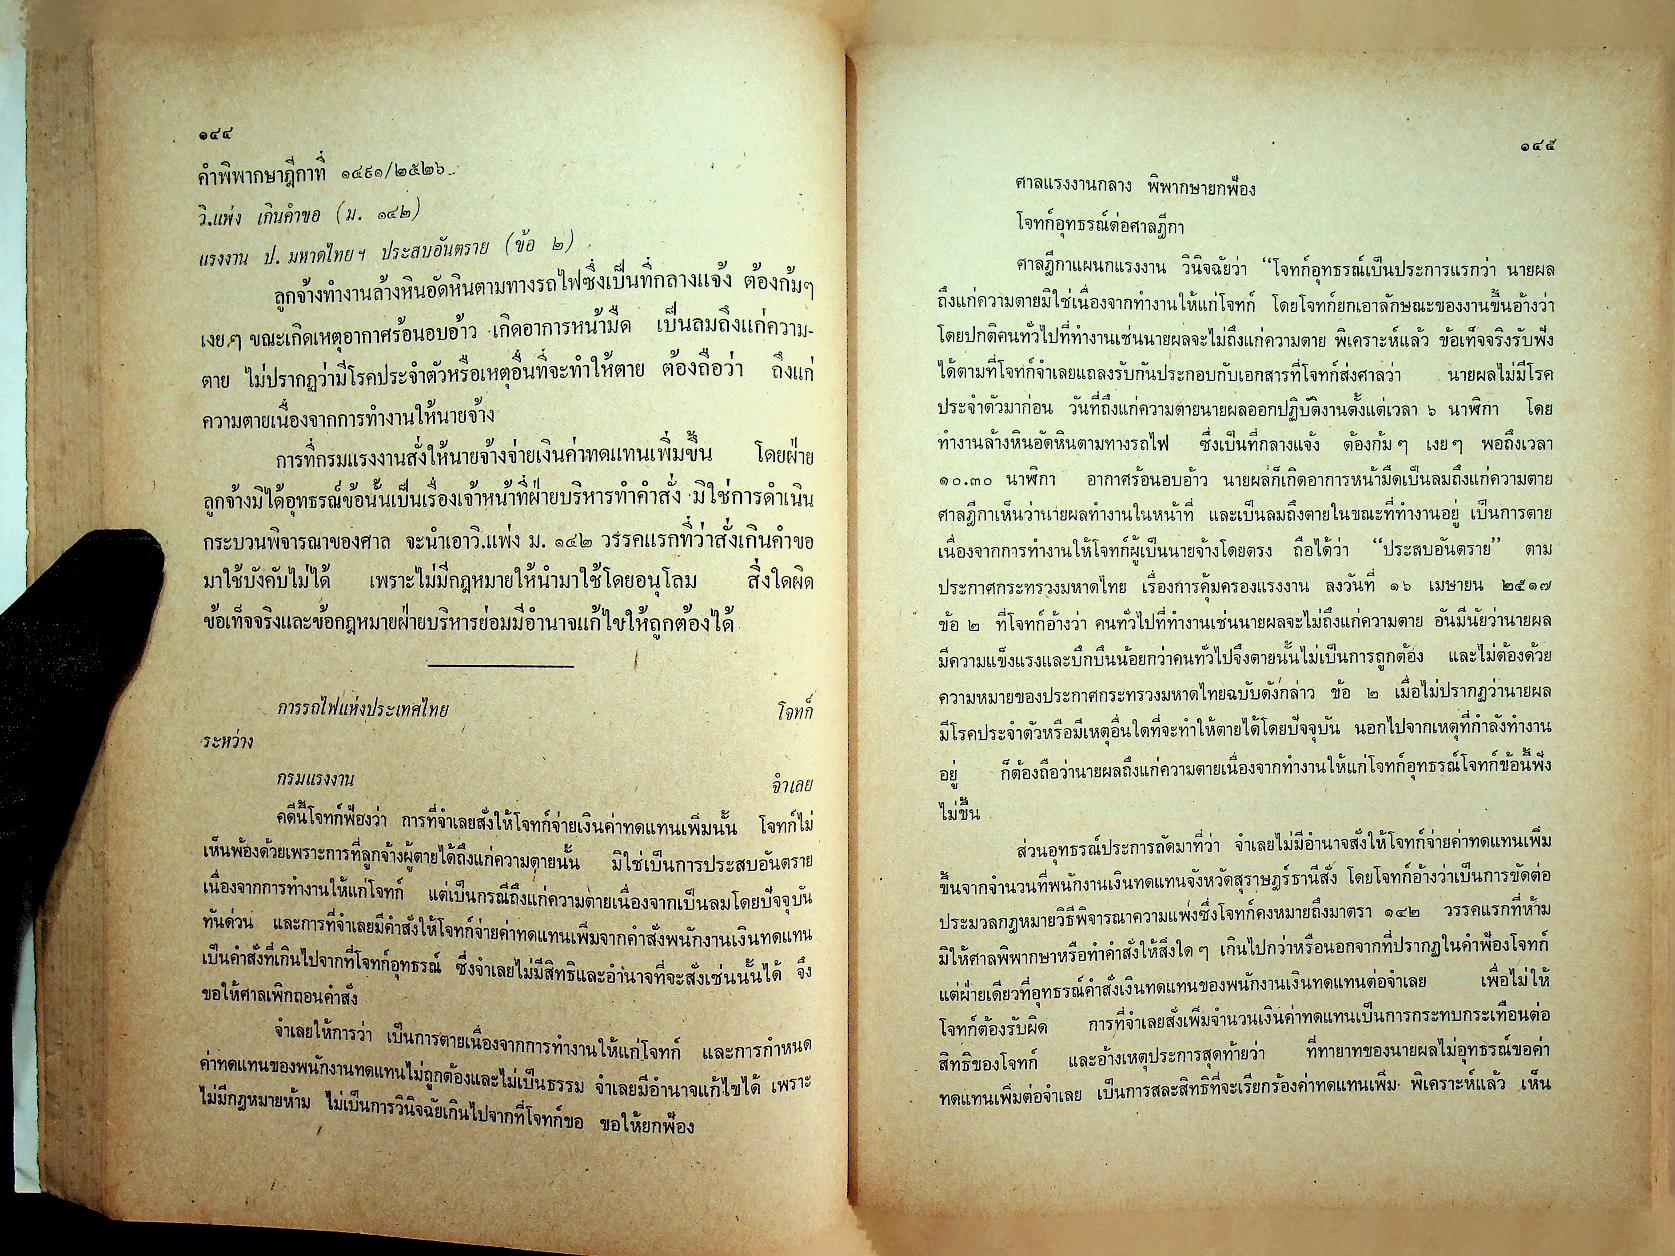 ๑๔๔
คำพิพากษาฎีกาที่ ๑๔๙๑/๒๕๒๖
วิ.แพ่ง เกินคำขอ (ม. ๑๔๒)
แรงงาน ป. มหาดไทยฯ ประสบอันตราย (ข้อ ๒)
ลูกจ้างทำงานล้างหินอัดหินตามทางรถไฟซึ่งเป็นที่กลางแจ้ง ต้องก้มๆ
เงยๆ ขณะเกิดเหตุอากาศร้อนอบอ้าว เกิดอาการหน้ามืด เป็นลมถึงแก่ความ-
ตาย ไม่ปรากฏว่ามีโรคประจำตัวหรือเหตุอื่นที่จะทำให้ตาย ต้องถือว่า ถึงแก่
ความตายเนื่องจากการทำงานให้นายจ้าง
การที่กรมแรงงานสั่งให้นายจ้างจ่ายเงินค่าทดแทนเพิ่มขึ้น โดยฝ่าย
ลูกจ้างมิได้อุทธรณ์ข้อนั้นเป็นเรื่องเจ้าหน้าที่ฝ่ายบริหารทำคำสั่ง มิใช่การดำเนิน
กระบวนพิจารณาของศาล จะนำเอาวิ.แพ่ง ม. ๑๔๒ วรรคแรกที่ว่าสั่งเกินคำขอ
มาใช้บังคับไม่ได้ เพราะไม่มีกฎหมายให้นำมาใช้โดยอนุโลม สิ่งใดผิด
ข้อเท็จจริงและข้อกฎหมายฝ่ายบริหารย่อมมีอำนาจแก้ไขให้ถูกต้องได้
การรถไฟแห่งประเทศไทย โจทก์
ระหว่าง
กรมแรงงาน จำเลย
คดีนี้โจทก์ฟ้องว่า การที่จำเลยสั่งให้โจทก์จ่ายเงินค่าทดแทนเพิ่มนั้น โจทก์ไม่
เห็นพ้องด้วยเพราะการที่ลูกจ้างผู้ตายได้ถึงแก่ความตายนั้น มิใช่เป็นการประสบอันตราย
เนื่องจากการทำงานให้แก่โจทก์ แต่เป็นกรณีถึงแก่ความตายเนื่องจากเป็นลมโดยปัจจุบัน
ทันด่วน และการที่จำเลยมีคำสั่งให้โจทก์จ่ายค่าทดแทนเพิ่มจากคำสั่งพนักงานเงินทดแทน
เป็นคำสั่งที่เกินไปจากที่โจทก์อุทธรณ์ ซึ่งจำเลยไม่มีสิทธิและอำนาจที่จะสั่งเช่นนั้นได้ จึง
ขอให้ศาลเพิกถอนคำสั่ง
จำเลยให้การว่า เป็นการตายเนื่องจากการทำงานให้แก่โจทก์ และการกำหนด
ค่าทดแทนของพนักงานทดแทนไม่ถูกต้องและไม่เป็นธรรม จำเลยมีอำนาจแก้ไขได้ เพราะ
ไม่มีกฎหมายห้าม ไม่เป็นการวินิจฉัยเกินไปจากที่โจทก์ขอ ขอให้ยกฟ้อง
๑๔๕
ศาลแรงงานกลาง พิพากษายกฟ้อง
โจทก์อุทธรณ์ต่อศาลฎีกา
ศาลฎีกาแผนกแรงงาน วินิจฉัยว่า “โจทก์อุทธรณ์เป็นประการแรกว่า นายผล
ถึงแก่ความตายมิใช่เนื่องจากทำงานให้แก่โจทก์ โดยโจทก์ยกเอาลักษณะของงานขึ้นอ้างว่า
โดยปกติคนทั่วไปที่ทำงานเช่นนายผลจะไม่ถึงแก่ความตาย พิเคราะห์แล้ว ข้อเท็จจริงรับฟัง
ได้ตามที่โจทก์จำเลยแถลงรับกันประกอบกับเอกสารที่โจทก์ส่งศาลว่า นายผลไม่มีโรค
ประจำตัวมาก่อน วันที่ถึงแก่ความตายนายผลออกปฏิบัติงานตั้งแต่เวลา ๖ นาฬิกา โดย
ทำงานล้างหินอัดหินตามทางรถไฟ ซึ่งเป็นที่กลางแจ้ง ต้องก้มๆ เงยๆ พอถึงเวลา
๑๐.๓๐ นาฬิกา อากาศร้อนอบอ้าว นายผลก็เกิดอาการหน้ามืดเป็นลมถึงแก่ความตาย
ศาลฎีกาเห็นว่านายผลทำงานในหน้าที่ และเป็นลมถึงตายในขณะที่ทำงานอยู่ เป็นการตาย
เนื่องจากการทำงานให้โจทก์ผู้เป็นนายจ้างโดยตรง ถือได้ว่า “ประสบอันตราย” ตาม
ประกาศกระทรวงมหาดไทย เรื่องการคุ้มครองแรงงาน ลงวันที่ ๑๖ เมษายน ๒๕๑๗
ข้อ ๒ ที่โจทก์อ้างว่า คนทั่วไปที่ทำงานเช่นนายผลจะไม่ถึงแก่ความตาย อันมีนัยว่านายผล
มีความแข็งแรงและบึกบึนน้อยกว่าคนทั่วไปจึงตายนั้นไม่เป็นการถูกต้อง และไม่ต้องด้วย
ความหมายของประกาศกระทรวงมหาดไทยฉบับดังกล่าว ข้อ ๒ เมื่อไม่ปรากฏว่านายผล
มีโรคประจำตัวหรือมีเหตุอื่นใดที่จะทำให้ตายได้โดยปัจจุบัน นอกไปจากเหตุที่กำลังทำงาน
อยู่ ก็ต้องถือว่านายผลถึงแก่ความตายเนื่องจากทำงานให้แก่โจทก์อุทธรณ์โจทก์ข้อนี้ฟัง
ไม่ขึ้น
ส่วนอุทธรณ์ประการถัดมาที่ว่า จำเลยไม่มีอำนาจสั่งให้โจทก์จ่ายค่าทดแทนเพิ่ม
ขึ้นจากจำนวนที่พนักงานเงินทดแทนจังหวัดสุราษฎร์ธานีสั่ง โดยโจทก์อ้างว่าเป็นการขัดต่อ
ประมวลกฎหมายวิธีพิจารณาความแพ่งซึ่งโจทก์คงหมายถึงมาตรา ๑๔๒ วรรคแรกที่ห้าม
มิให้ศาลพิพากษาหรือทำคำสั่งให้สิ่งใดๆ เกินไปกว่าหรือนอกจากที่ปรากฏในคำฟ้องโจทก์
แต่ฝ่ายเดียวที่อุทธรณ์คำสั่งเงินทดแทนของพนักงานเงินทดแทนต่อจำเลย เพื่อไม่ให้
โจทก์ต้องรับผิด การที่จำเลยสั่งเพิ่มจำนวนเงินค่าทดแทนเป็นการกระทบกระเทือนต่อ
สิทธิของโจทก์ และอ้างเหตุประการสุดท้ายว่า ที่ทายาทของนายผลไม่อุทธรณ์ขอค่า
ทดแทนเพิ่มต่อจำเลย เป็นการสละสิทธิที่จะเรียกร้องค่าทดแทนเพิ่ม พิเคราะห์แล้ว เห็น